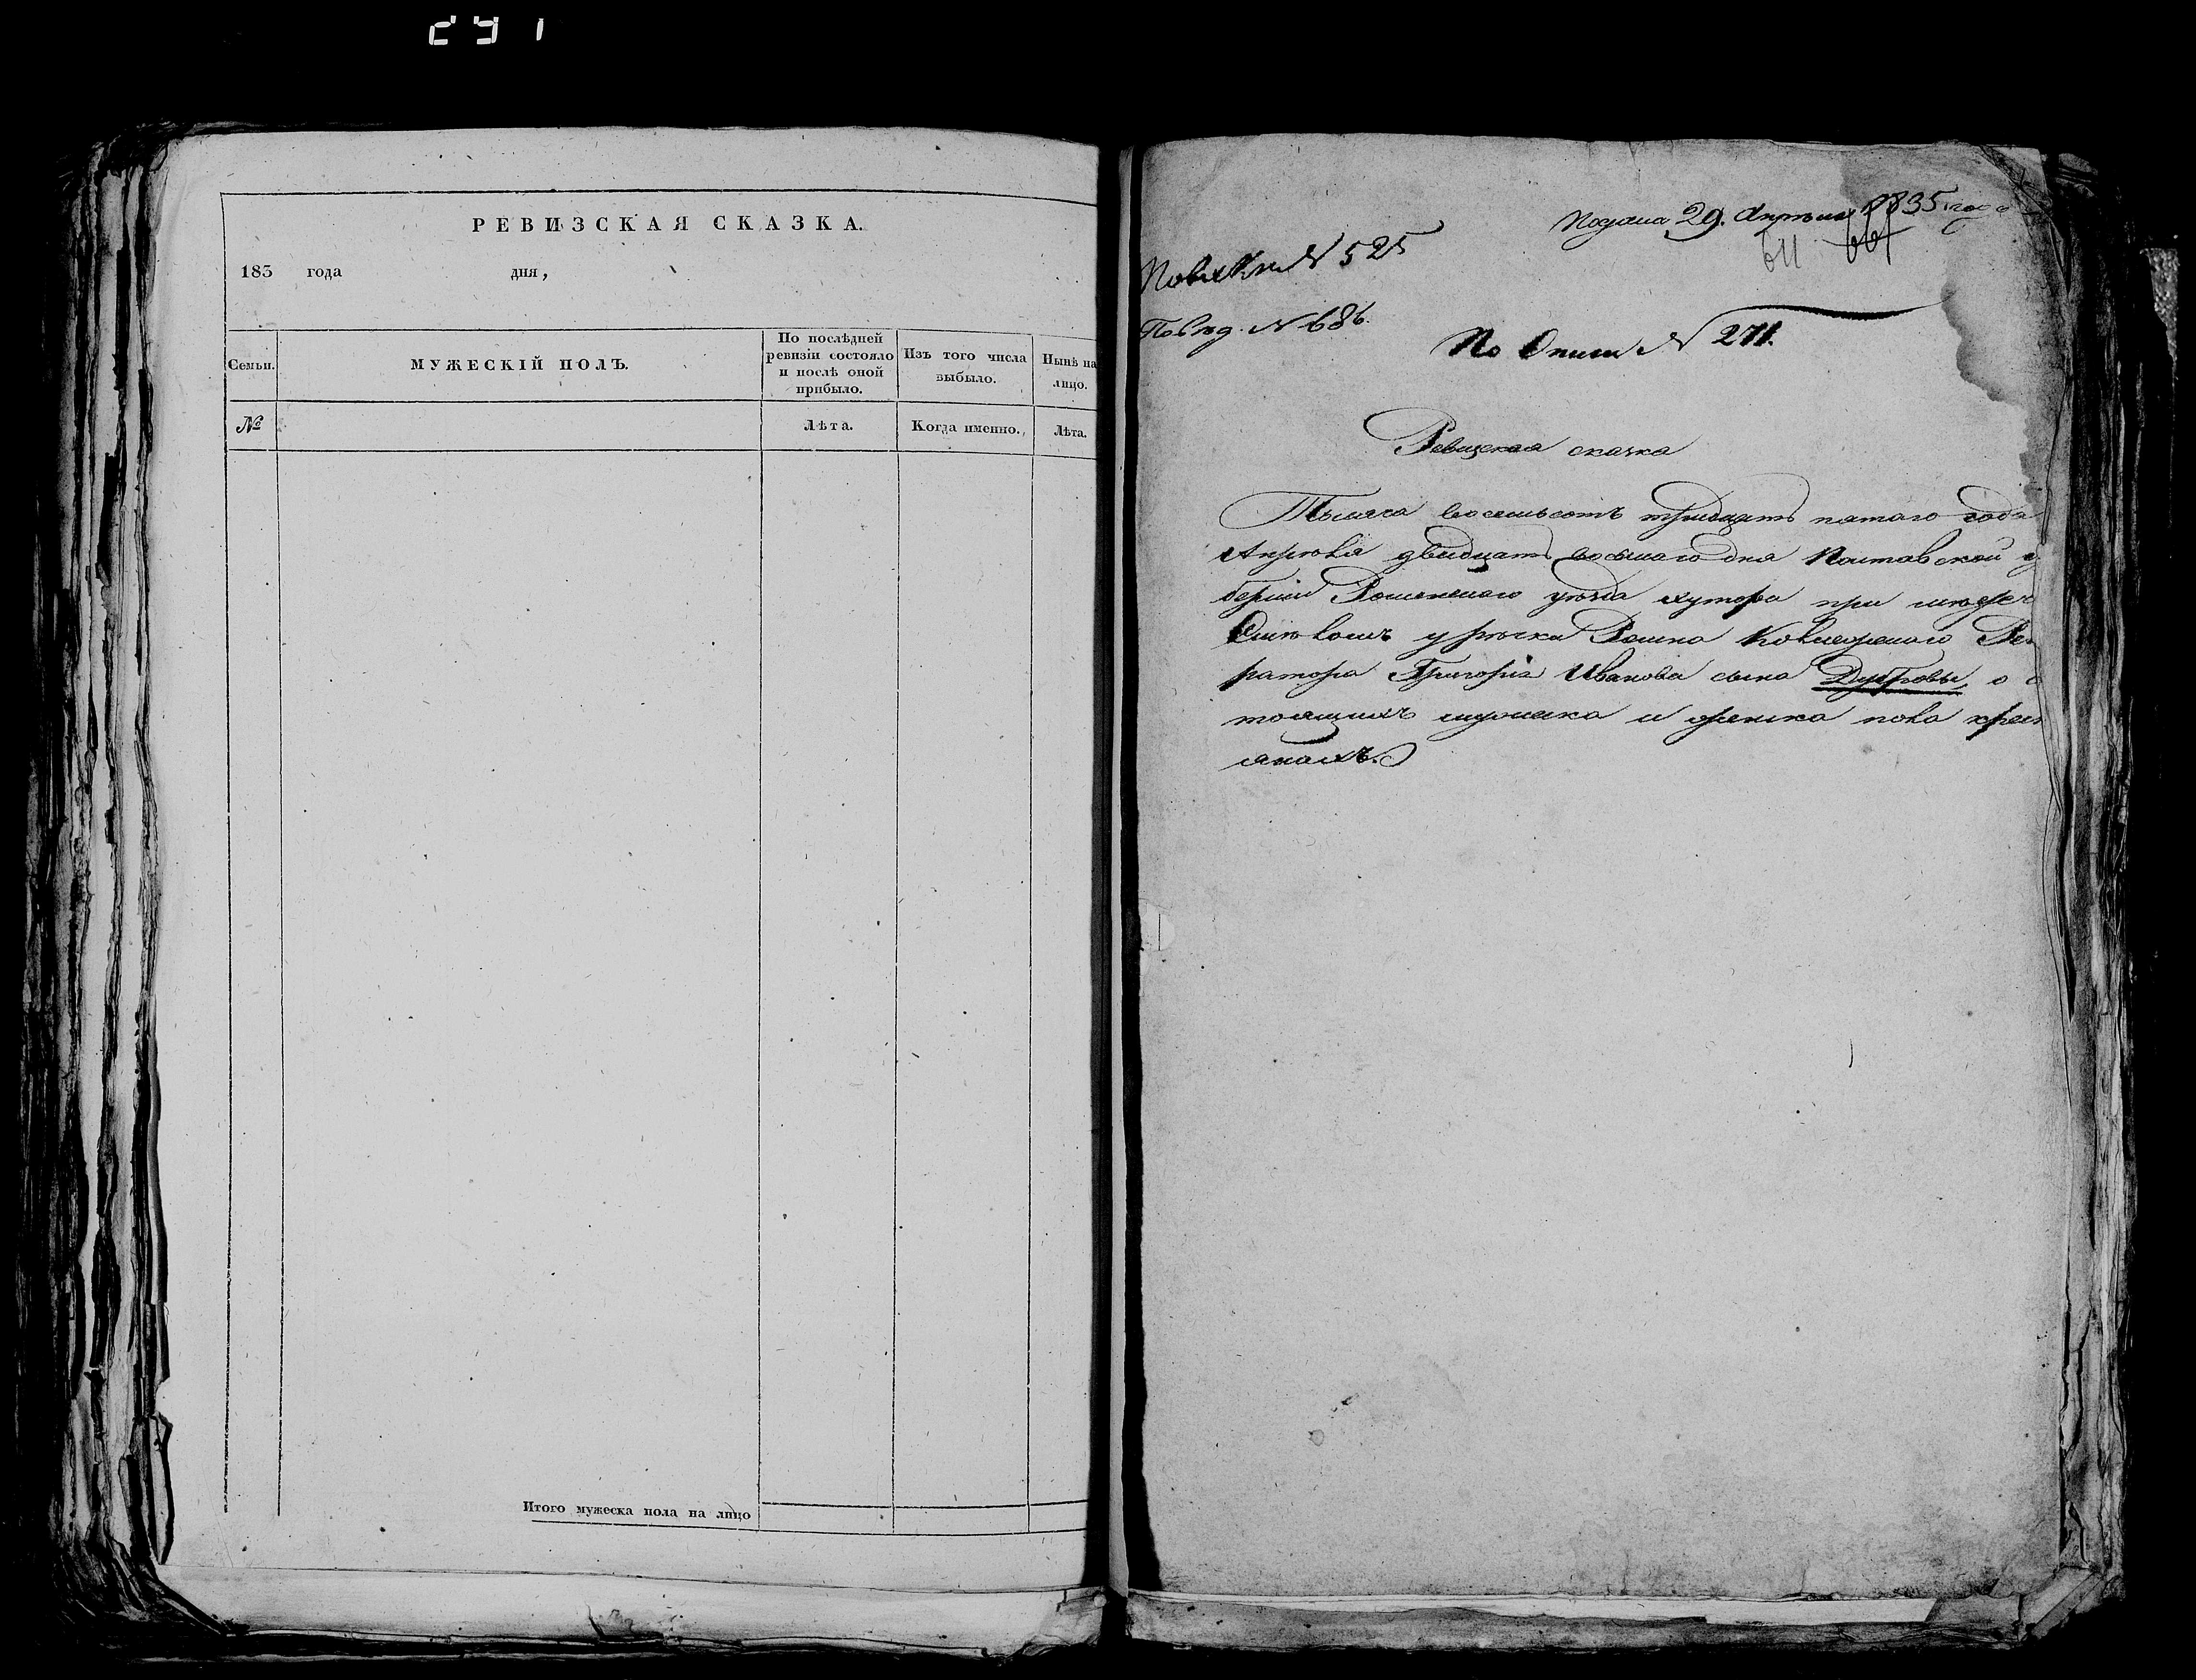 291
РЕВИЗСКАЯ СКАЗКА.
183 года дня,
Семьи.
МУЖЕСКІЙ ПОЛЪ.
По послѣдней
ревизіи состояло
и послѣ оной
прибыло.
Изъ того числа
выбыло.
Нынѣ на
лицо.
№
Лѣта.
Когда именно.
Лѣта.
Итого мужеска пола на лицо
Подана 29. Апрѣля 1835 года
611 661
№ 525
№ 686.
По Описи № 271.
Ревизская сказка
Тысяча восемьсотъ тридцать пятаго года
Апрѣля двадцать восьмаго дня Полтавской гу
берніи Роменскаго уѣзда хутора при
у рѣчки Ромна
ратора Григорія Иванова сына Дубровы, о с
тоящихъ мужеска и женска пола крест
янахъ.